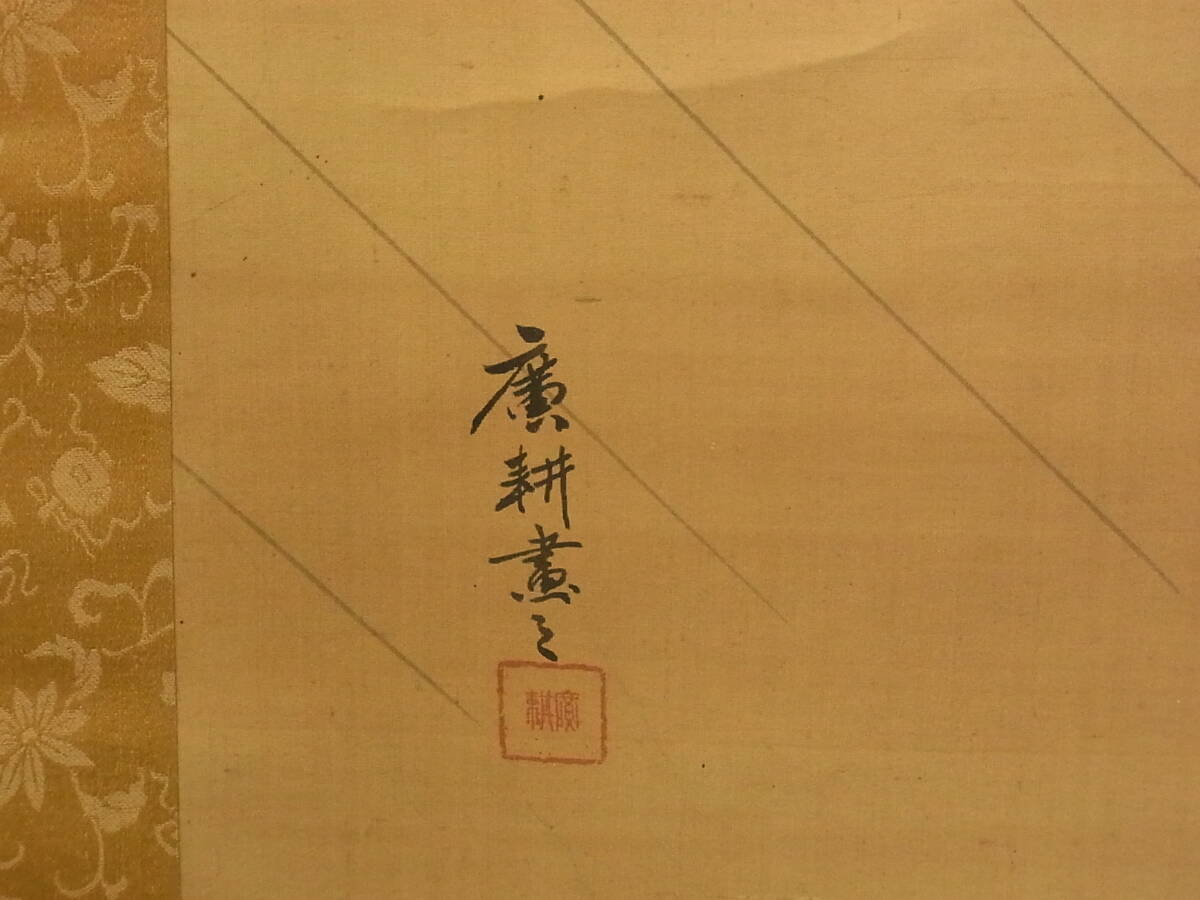 廣耕畫之
廣耕